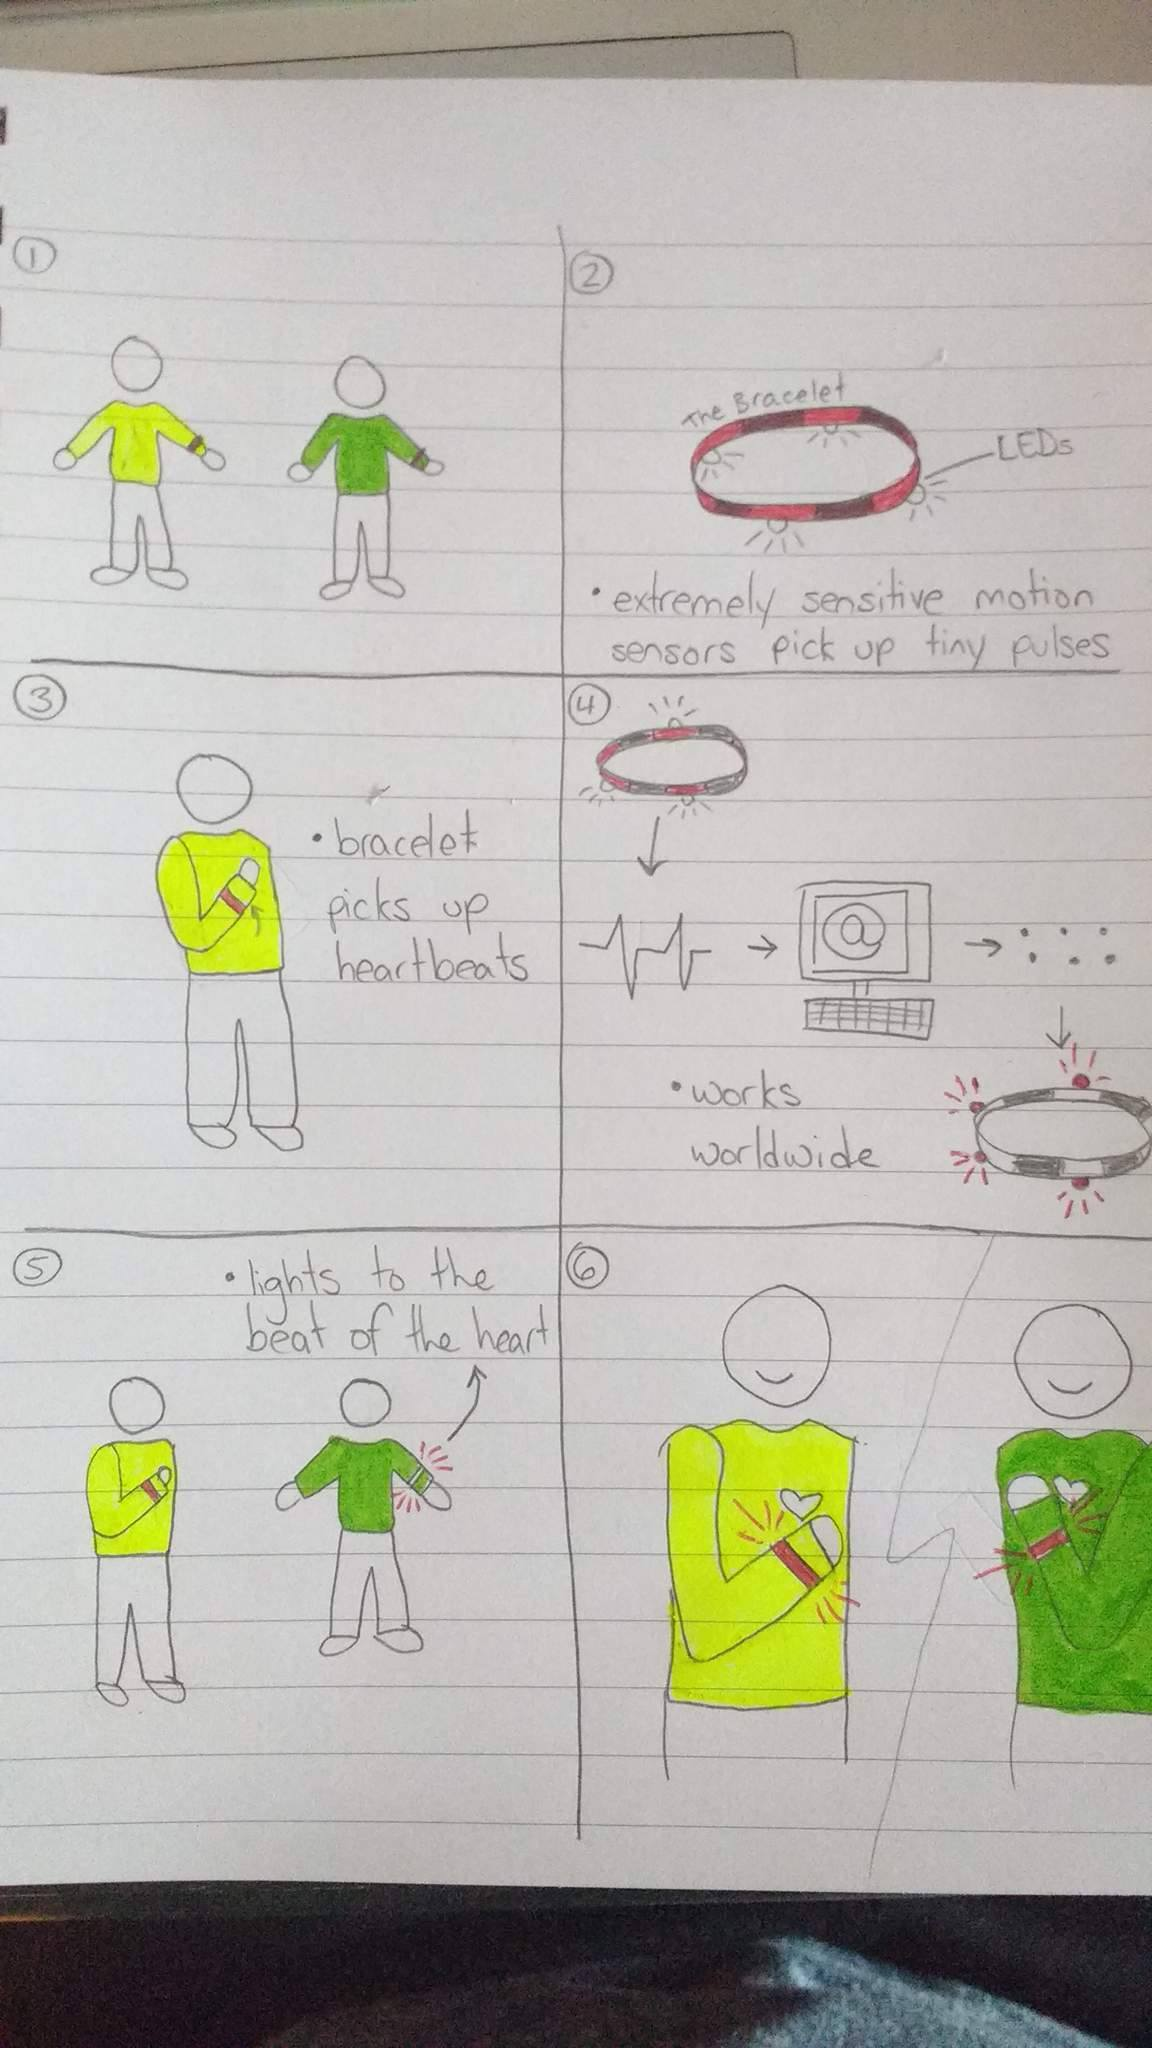 1
2
The Bracelet
LEDs
• extremely sensitive motion
sensors pick up tiny pulses
3
• bracelet
picks up
heartbeats
4
@
• works
worldwide
5
• lights to the
beat of the heart
6